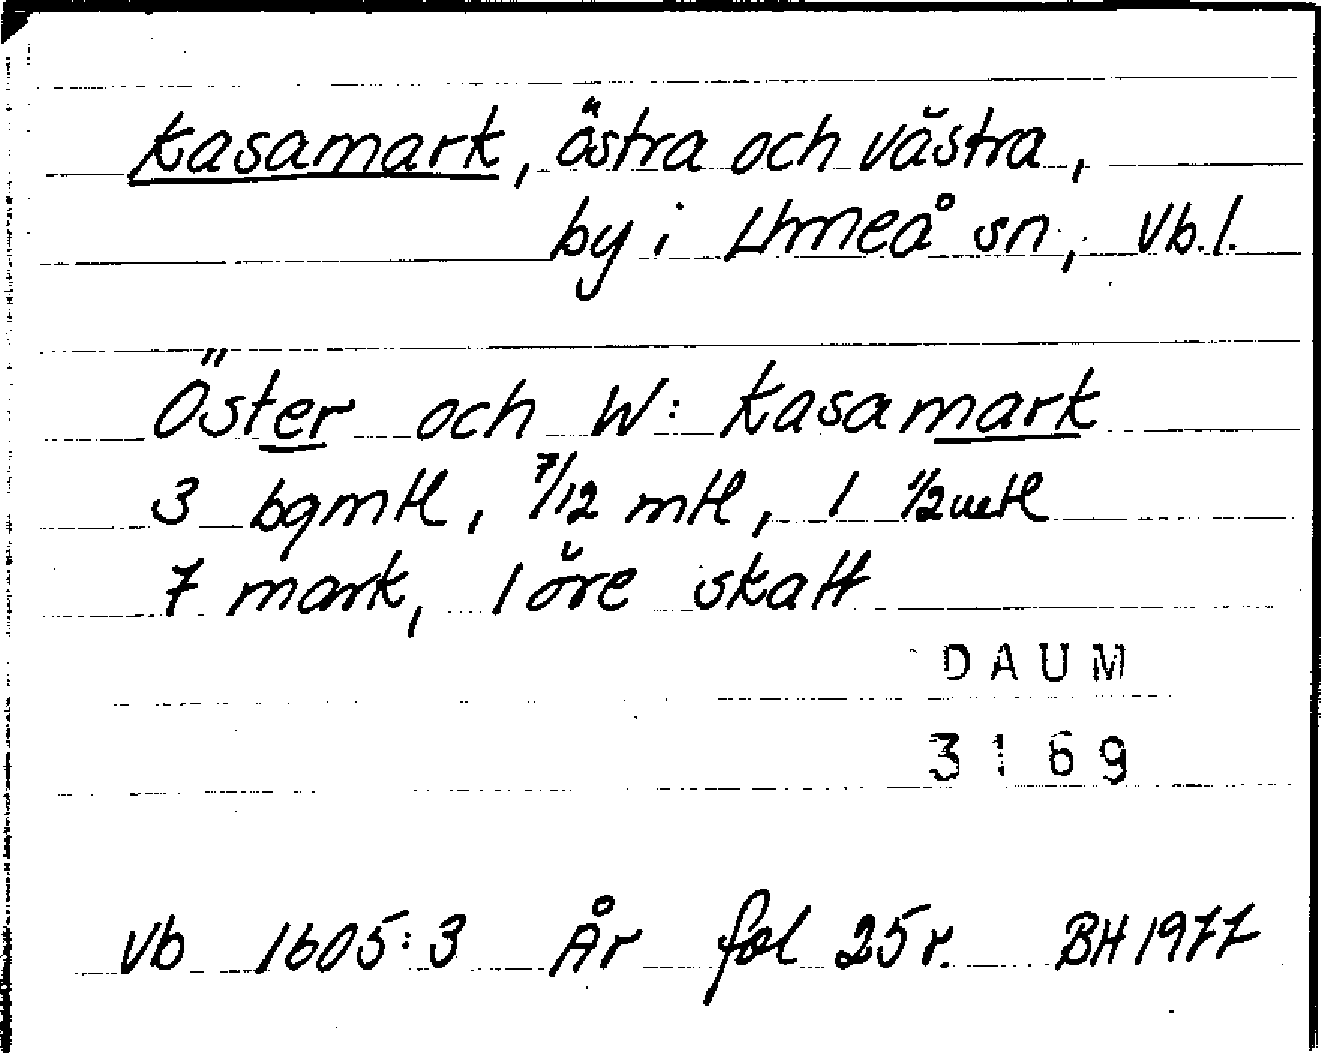 Kasamark, östra och västra,
by i Umeå sn, Vb.l.
Öster och W: Kasamark
3 bgmtl, 7/12 mtl, 1 1/2 mtl
7 mark, 1 öre skatt
DAUM
3169
Vb 1605:3 År fol 25r. BH 1977